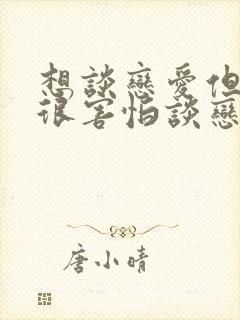 想談戀愛但
很害怕談戀
唐小晴